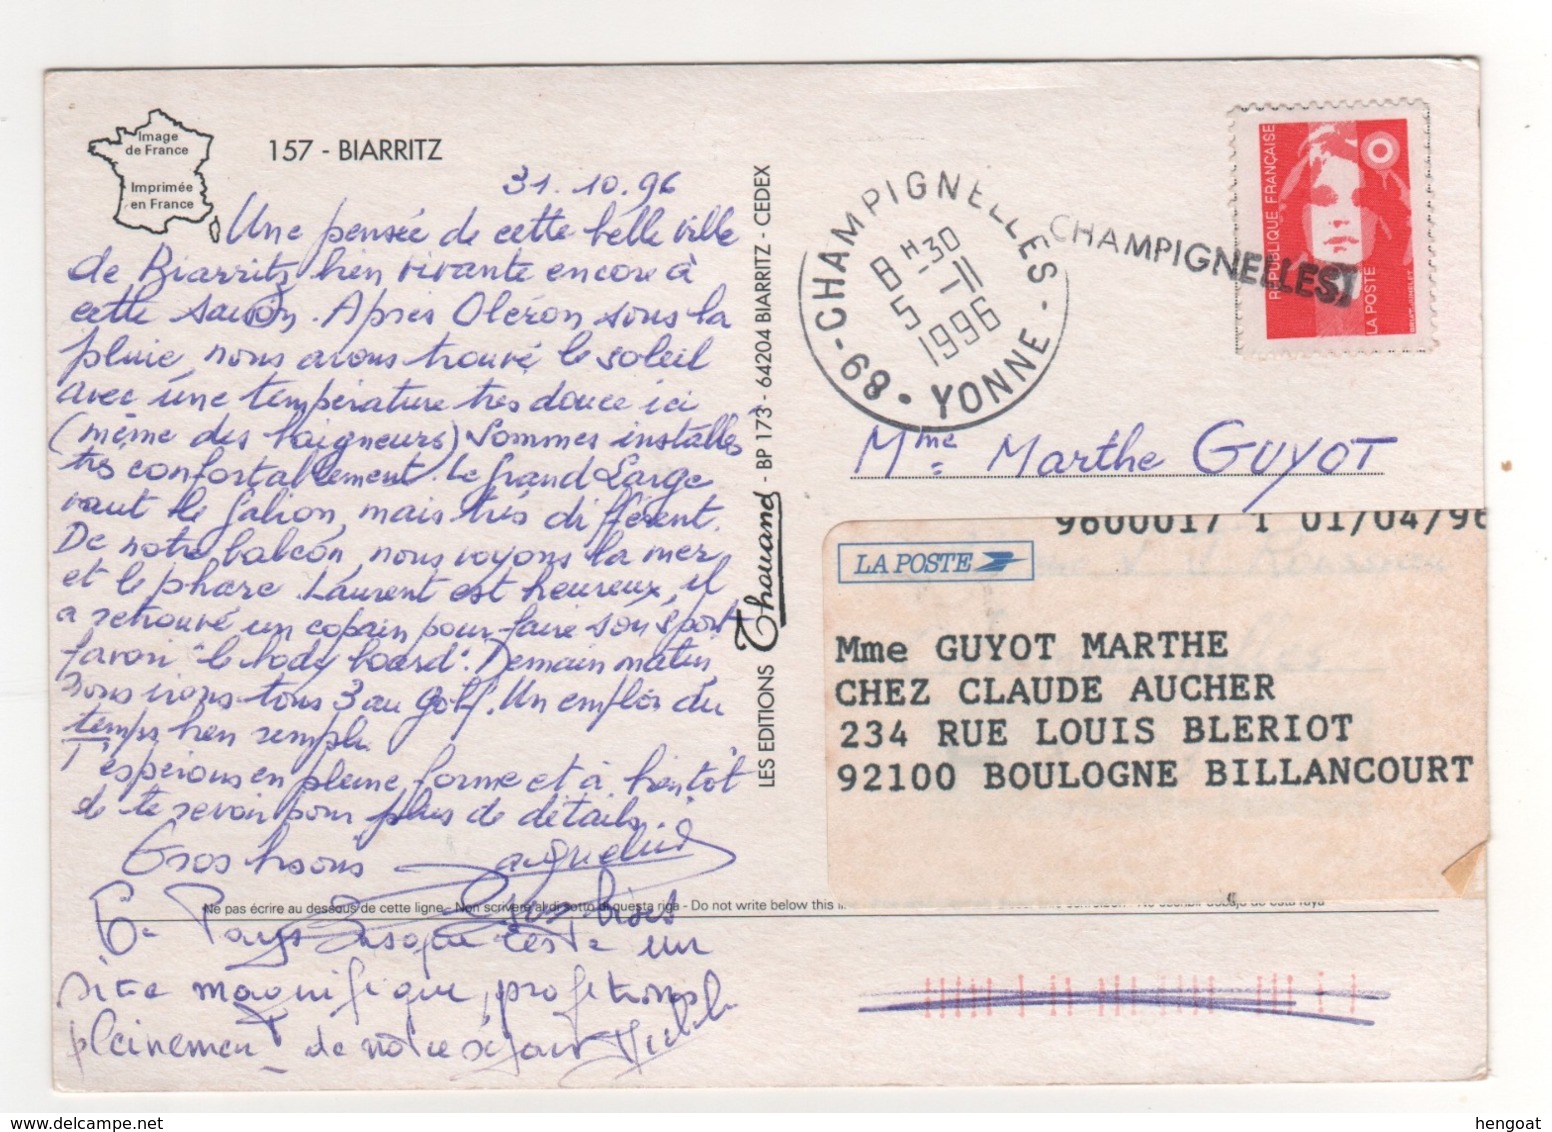 Image
de France
Imprimée
en France
157 - BIARRITZ
31.10.96
Une pensée de cette belle ville
de Biarritz, bien vivante encore à
cette saison. Après Oléron sous la
pluie, nous avons trouvé le soleil
avec une température très douce ici
(même des baigneurs) Sommes installés
très confortablement. Le Grand Large
vaut le Galion, mais très différent.
De notre balcon, nous voyons la mer
et le phare. Laurent est heureux, il
a retrouvé un copain pour faire son sport
favori "le body board". Demain matin
nous irons tous 3 au golf. Un emploi du
temps bien rempli.
T'espérons en pleine forme et à bientôt
de te revoir pour plus de détails.
Gros bisous Jacqueline
Gros bises
Ce Pays Basque est un
site magnifique, profitons
pleinement de notre séjour Michel
Ne pas écrire au dessous de cette ligne - Non scrivere al di sotto di questa riga - Do not write below this
LES EDITIONS Thouand - BP 173 - 64204 BIARRITZ - CEDEX
89 - CHAMPIGNELLES - YONNE
8 H 30
5 - 11
1996
CHAMPIGNELLES
REPUBLIQUE FRANÇAISE
LA POSTE
Mme Marthe GUYOT
9600017 1 01/04/96
LA POSTE
Mme GUYOT MARTHE
CHEZ CLAUDE AUCHER
234 RUE LOUIS BLERIOT
92100 BOULOGNE BILLANCOURT
hengoat